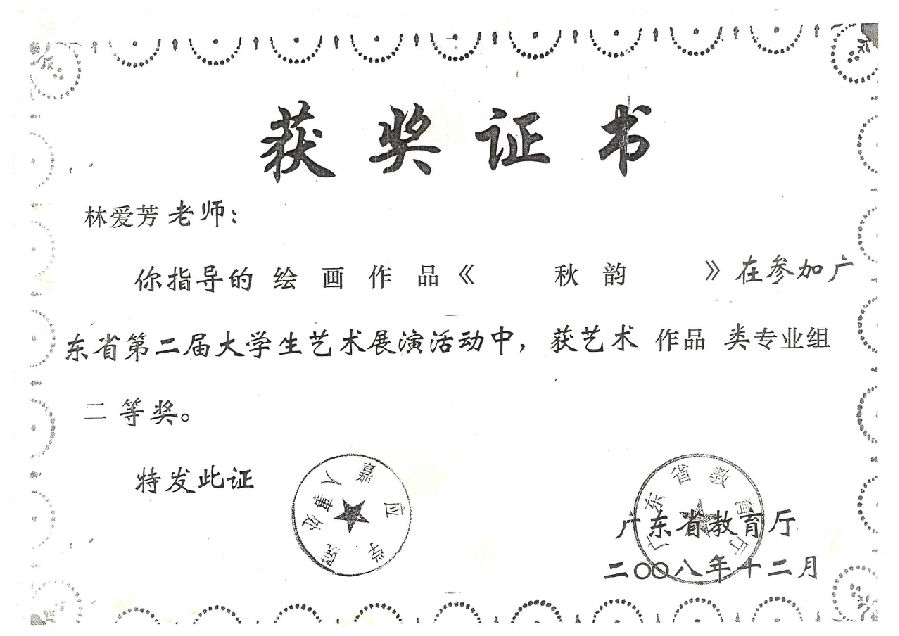 获奖证书
林爱芳老师：
你指导的绘画作品《 秋韵 》在参加广
东省第二届大学生艺术展演活动中，获艺术作品类专业组
二等奖。
特发此证
嘉应学院人事处
广东省教育厅
广东省教育厅
二〇〇八年十二月